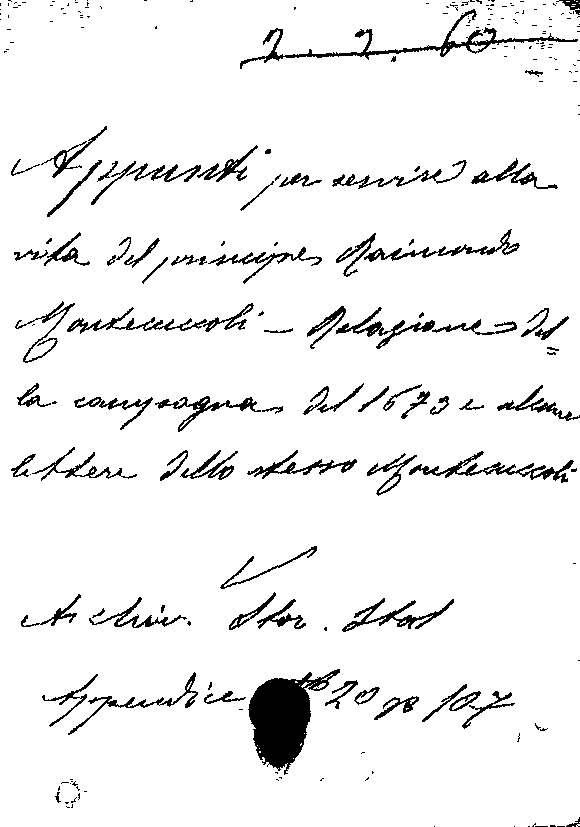 2. 2. 60
Appunti per servire alla
vita del principe Raimondo
Montecuccoli – Relazione del=
la campagna del 1673 e alcune
lettere dello stesso Montecuccoli
Archiv. Stor. Ital
Appendice 20 p 107